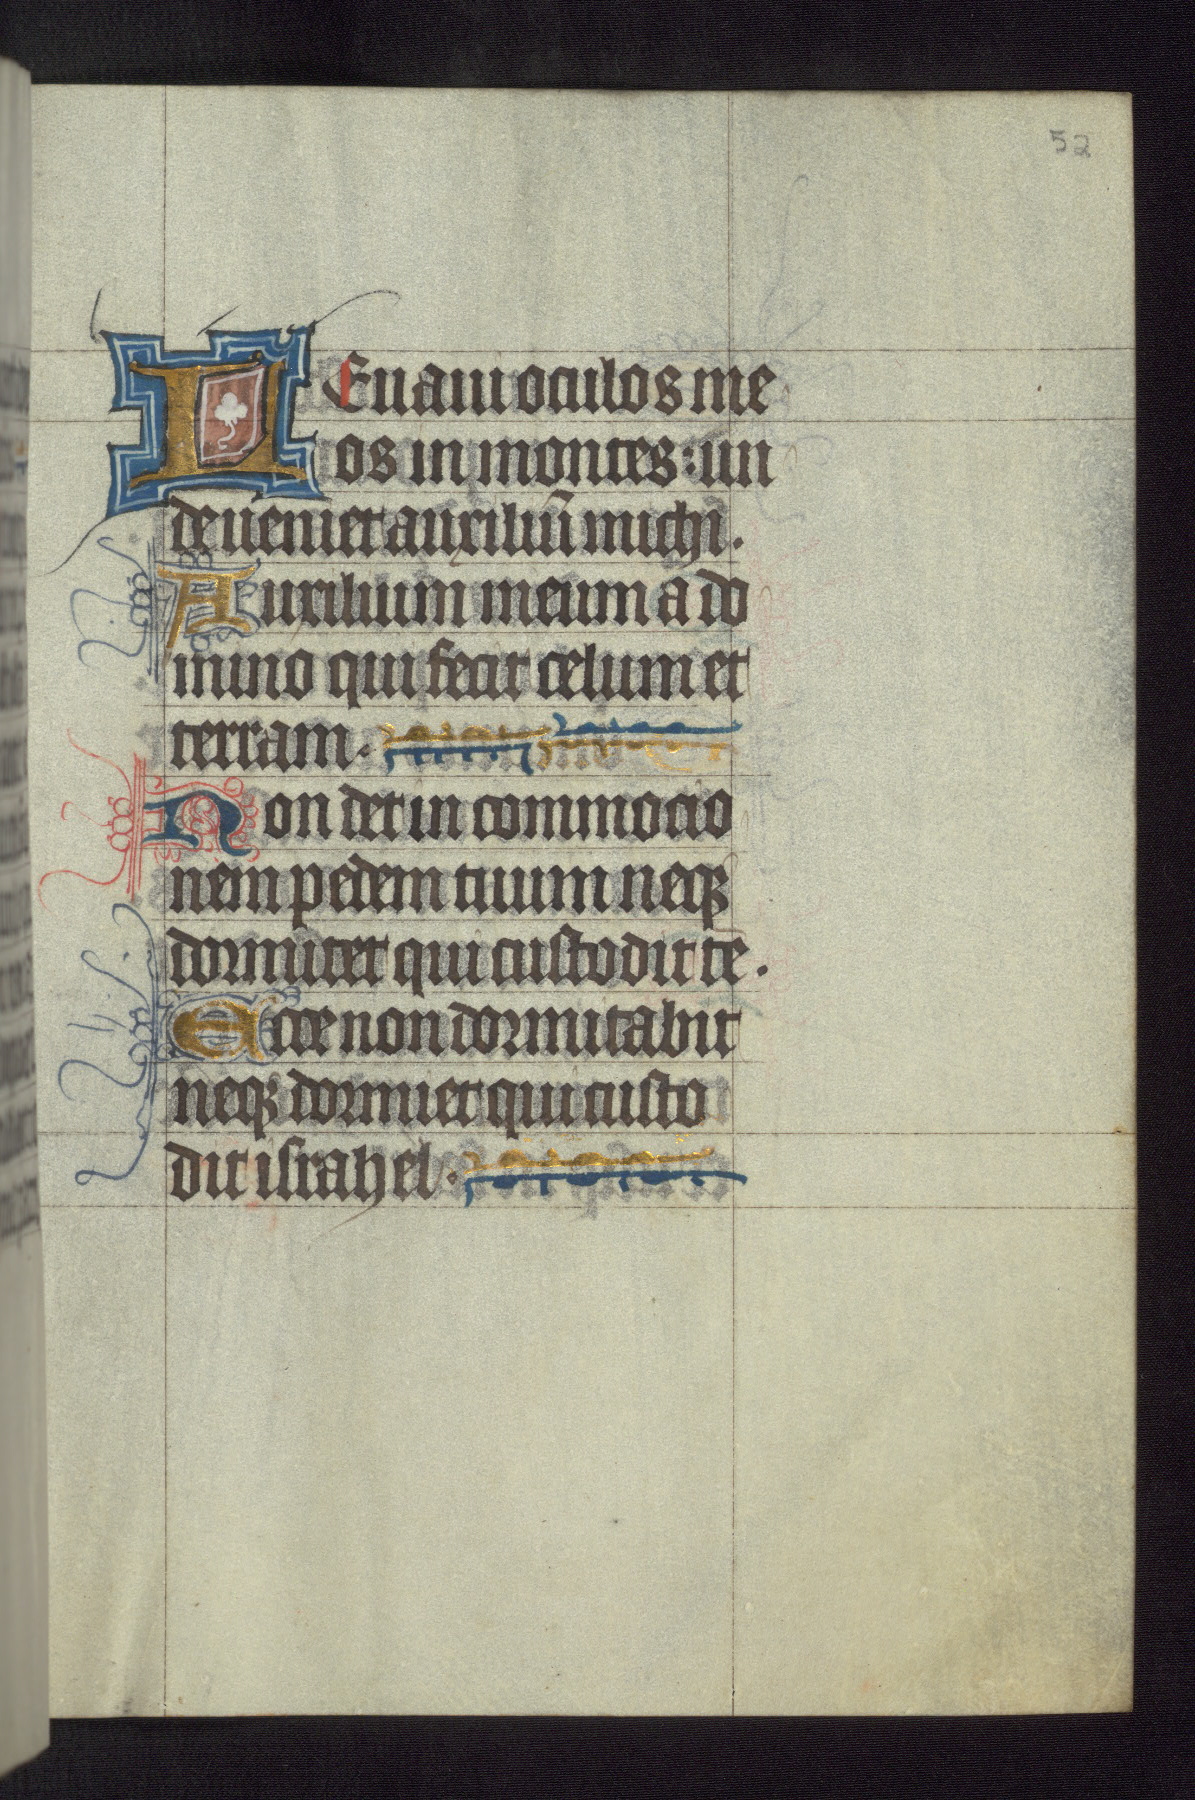 52
LEuaui oculos me
os in montes: un
de ueniet auxiliu᷑ michi.
Auxilium meum a do
mino qui fecit celum et
terram.
Non det in commocio
nem pedem tuum neqꝫ
dormitet qui custodit te.
Ecce non dormitabit
neqꝫ dormiet qui custo
dit israhel.